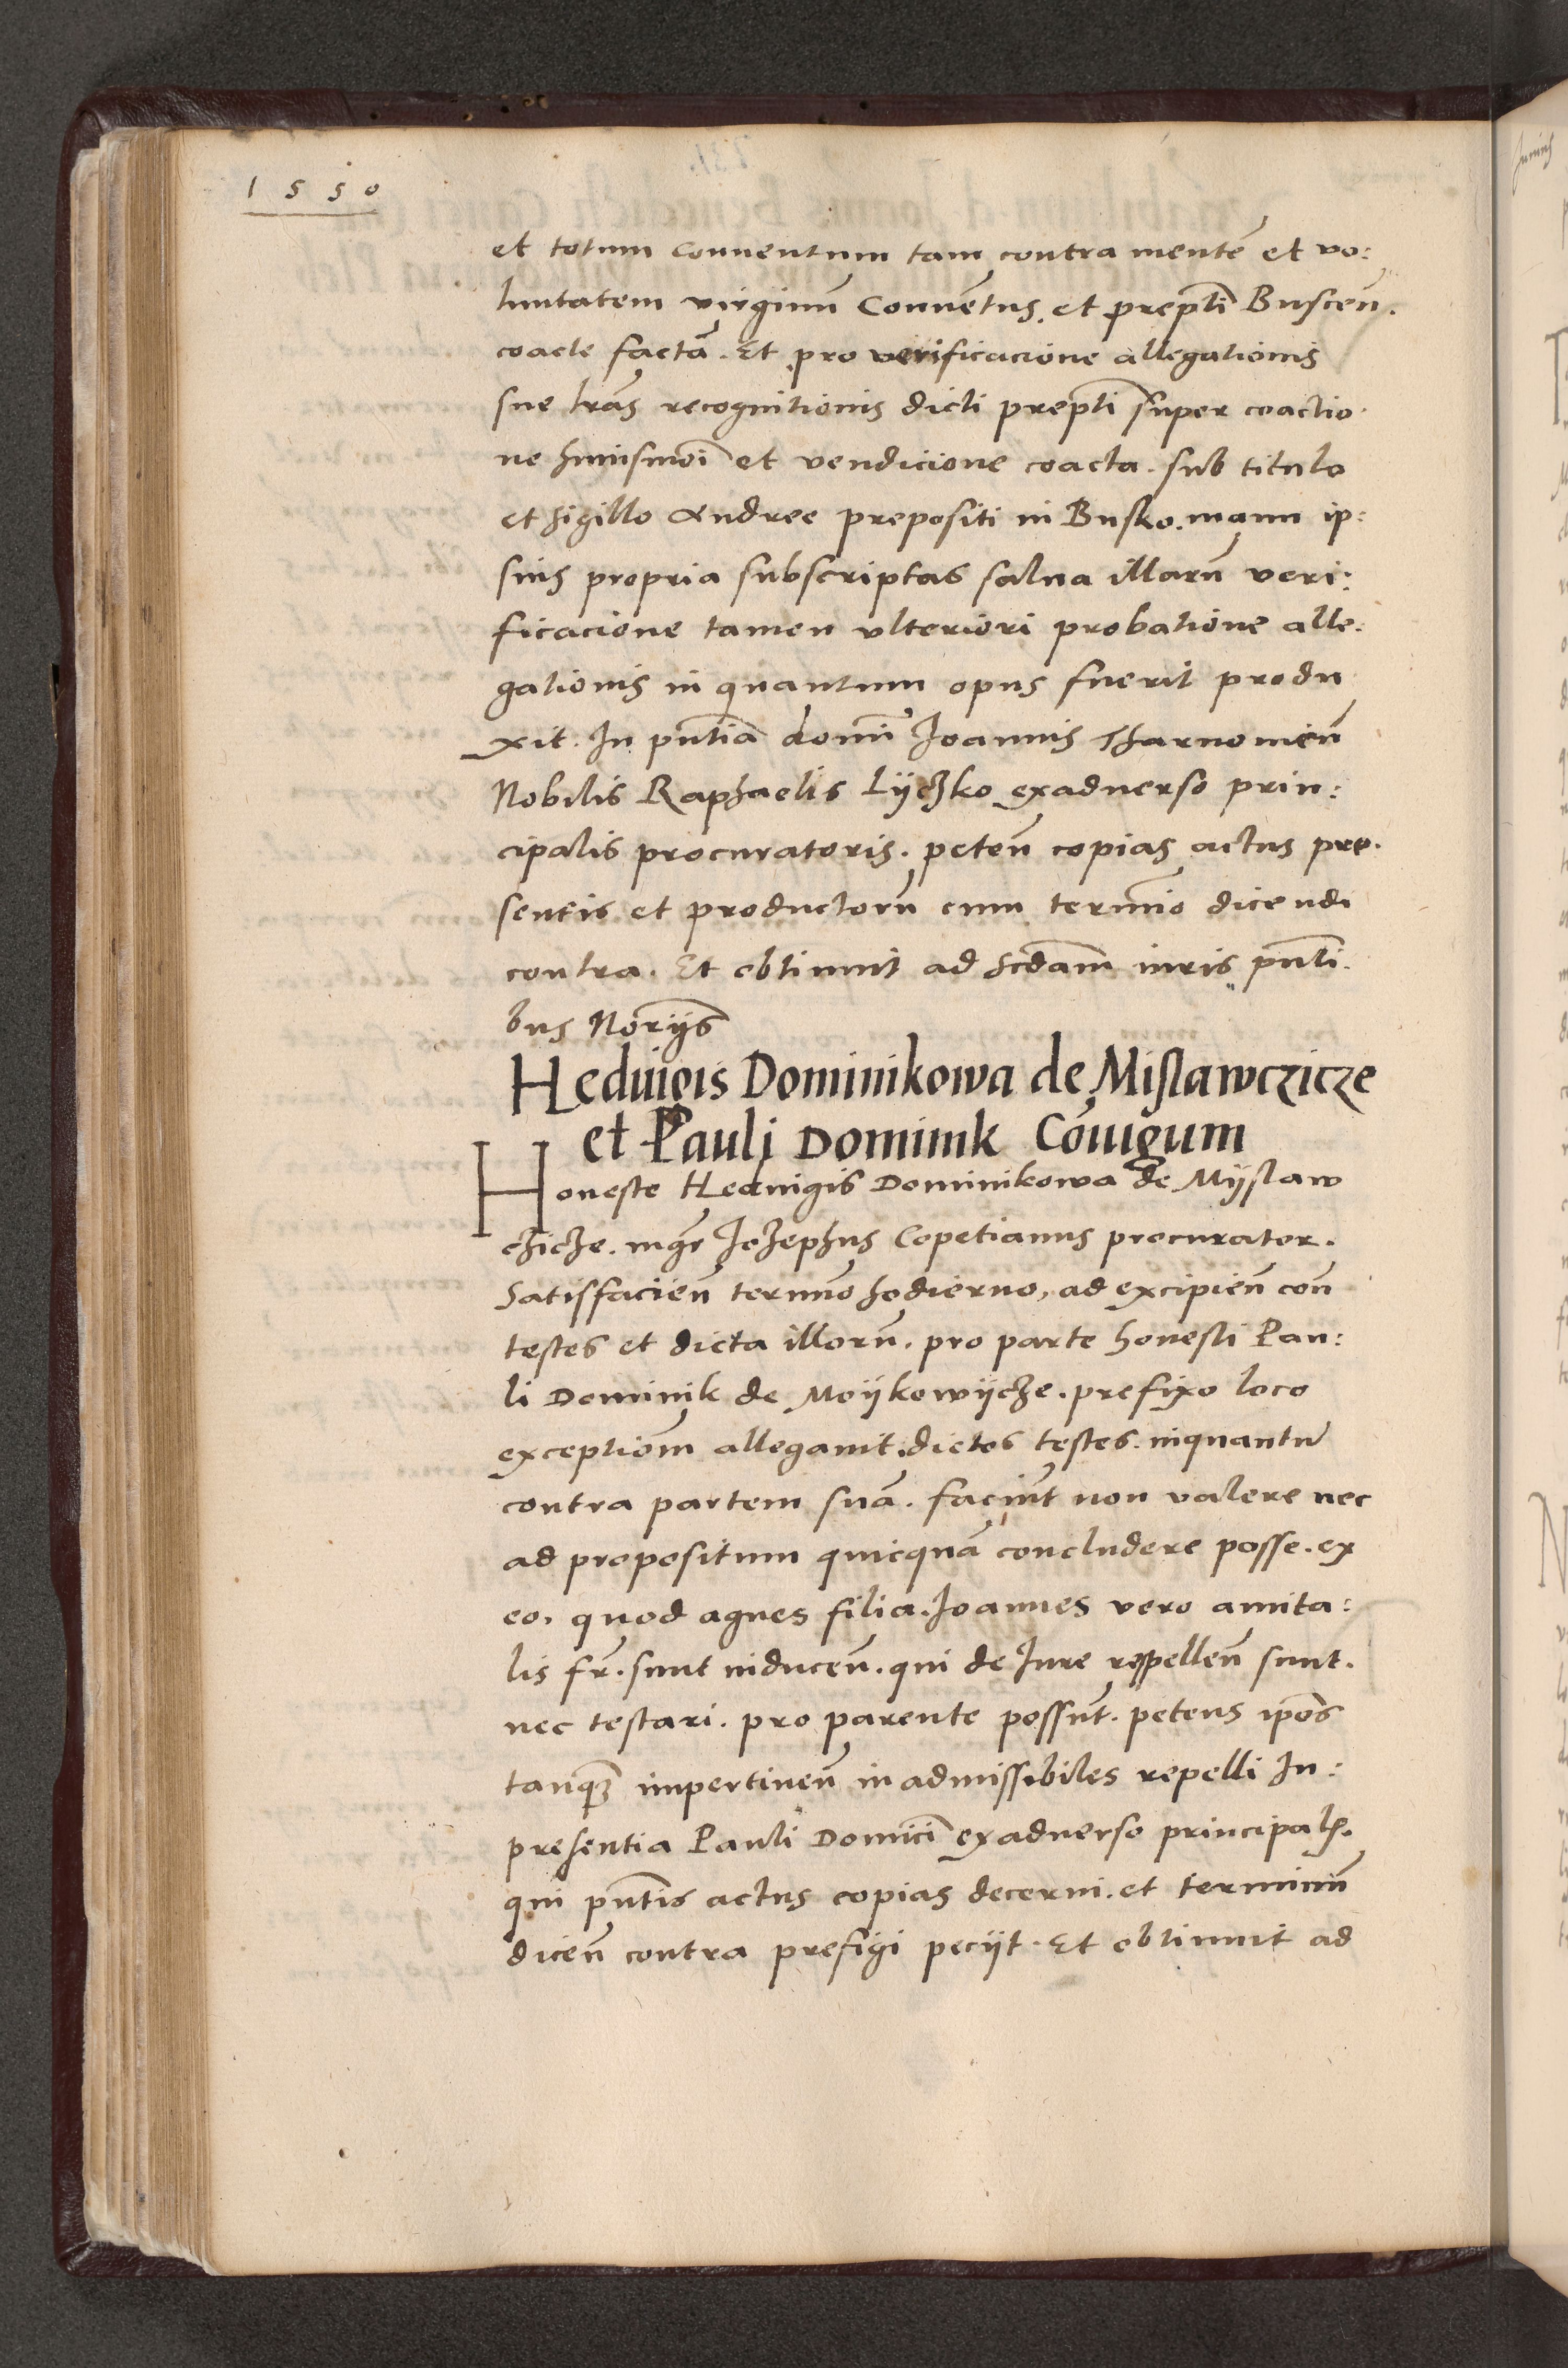 1550
et totum Conuentum tam contra mentē et vo:
luntatem virginū Conuētus, et prepti Buscen̄.
coacte factā. Et pro verificacione allegationis
sue lrās recognitionis dicti prepti super coactio
ne huiusmoi et vendicione coacta. sub titulo
et sigillo Andree prepositi in Busko. manu ip:
sius propria subscriptas salua illarū veri:
ficacione tamen vlteriori probatione alle:
gationis in quantum opus fuerit produ
xit. In pntia domi Joannis Tharnowień
Nobilis Raphaelis Lyczko exaduerso prin:
cipalis procuratoris. peten̄ copias actus pre.
sentis et productorū cum termio dicendi
contra. Et obtinuit ad scdam iuris pnti.
bus Norijs
Heduigis Dominikowa de Mislawczicze
et Pauli Dominik Cōiugum
Honeste Heduigis Dominikowa de Myslaw
czicze. mgr Jozephus Copetianus procurator.
Satisfacien̄ termno hodierno, ad excipien̄ con̄
testes et dicta illorū. pro parte honesti Pau:
li Dominik de Moykowycze. prefixo loco
exceptiom allegauit. dictos testes. inquantū
contra partem suā. faciūt non valere nec
ad propositum quicquā concludere posse. ex
eo. quod agnes filia. Joannes vero amita:
lis fr̄. sunt inducen̄. qui de Jure reppellen̄ sunt.
nec testari. pro parente possūt. petens ipos
tanq̄ impertinen̄ inadmissibiles repelli In:
presentia Pauli Domici exaduerso principalis.
qui pntis actus copias decerni. et terminū
dicen̄ contra prefigi pecijt. Et obtinuit ad